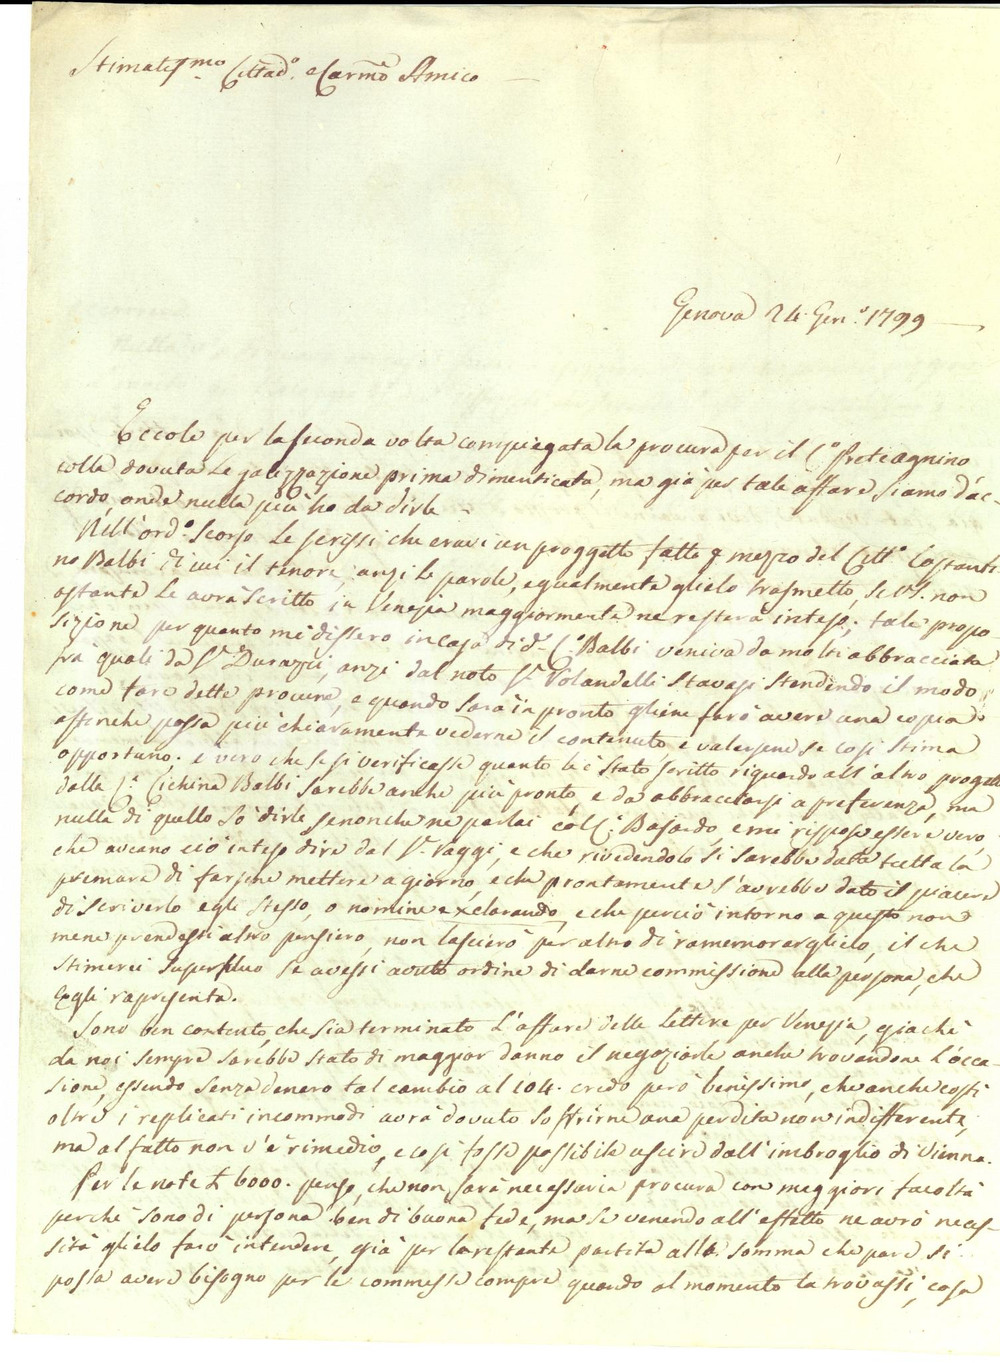 Stimatissmo Cittado. e Carmo Amico
Genova 24. Gen.o 1799
Eccole per la seconda volta compiegata la procura per il C.o Preti agnino
colla dovuta Legalizzazione prima dimenticata, ma già per tale affare siamo d'ac-
cordo, onde nulla più ho da dirle -
Nell'ord.o scorso Le scrissi che eravi un proggetto fatto p mezzo del Citt.o Costanti-
no Balbi di cui il tenore, anzi le parole, egualmente glielo trasmetto, se V.S. non
ostante Le avrà scritto in Venezia maggiormente ne resterà inteso; tale propo-
sizione per quanto mi dissero in casa di d.o C.o Balbi veniva da molti abbracciata
frà quali dà Sr. Durazzi, anzi dal noto Sr. Volandelli stavasi stendendo il modo
come fare dette procure, e quando sarà in pronto gliene farò avere una copia
affinche possa più chiaramente vederne il contenuto e valersene se così stima
opportuno. è vero che se si verificasse quanto le è stato scritto riguardo all'altro progetto
dalla Sa. Cichina Balbi sarebbe anche più pronto, e da abbracciarsi a preferenza, ma
nulla di quello sò dirle senonche ne parlai col C. Basardo, e mi rispose essere vero,
che aveano ciò inteso dire dal Sr. Vaggi, e che rivedendolo si sarebbe data tutta la
premura di farsene mettere a giorno, e che prontamente s'avrebbe dato il piacere
di scriverlo egli stesso, o nomine exclarando, e che perciò intorno a questo non
mene prendessi altro pensiero, non lascierò per altro di ramemorarglielo, il che
stimerei superfluo se avessi avuto ordine di darne commissione alla persona, che
Egli rapresenta.
Sono ben contento, che sia terminato L'affare delle Lettere per Venezia, giachè
da noi sempre sarebbe stato di maggior danno il negoziarle anche trovandone L'occa-
sione, essendo senza denero tal cambio al 104. credo però benissimo, che anche costì
oltre i replicati incommodi avrà dovuto soffrirne una perdita non indifferente,
ma al fatto non v'è rimedio, e così fosse possibile uscire dall'imbroglio di Vienna.
Per le note £ 6000. penso, che non sarà necessaria procura con maggiori facoltà
perchè sono di persona ben di buona fede, ma se venendo all'effetto ne avrò neces-
sità glielo farò intendere, già per la restante partita alla somma che pare si
possa avere bisogno per le commesse compre quando al momento la trovassi, cosa